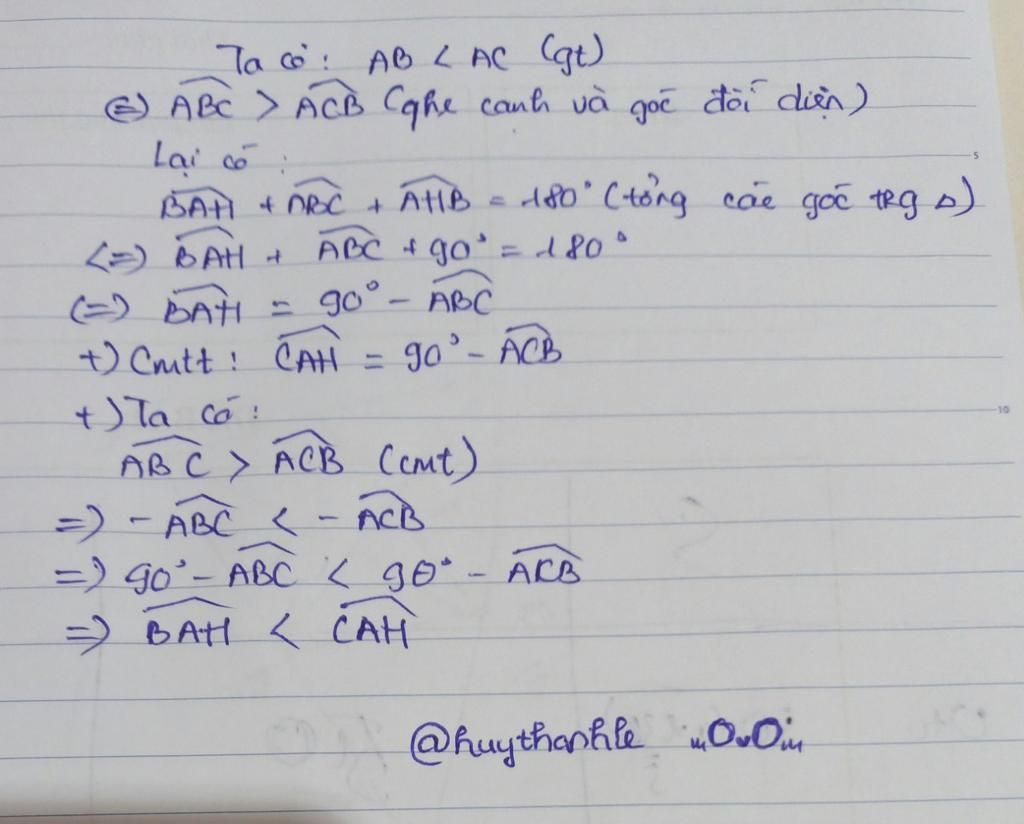 Ta có: AB < AC (gt)
(=) \widehat{ABC} > \widehat{ACB} (qhe cạnh và góc đối diện)
Lại có:
5
\widehat{BAH} + \widehat{ABC} + \widehat{AHB} = 180° (tổng các góc trg Δ)
<=) \widehat{BAH} + \widehat{ABC} + 90° = 180°
(=) \widehat{BAH} = 90° - \widehat{ABC}
+) Cmtt: \widehat{CAH} = 90° - \widehat{ACB}
+) Ta có:
10
\widehat{ABC} > \widehat{ACB} (cmt)
=) - \widehat{ABC} < - \widehat{ACB}
=) 90° - \widehat{ABC} < 90° - \widehat{ACB}
=) \widehat{BAH} < \widehat{CAH}
@huythanhle mOvOm